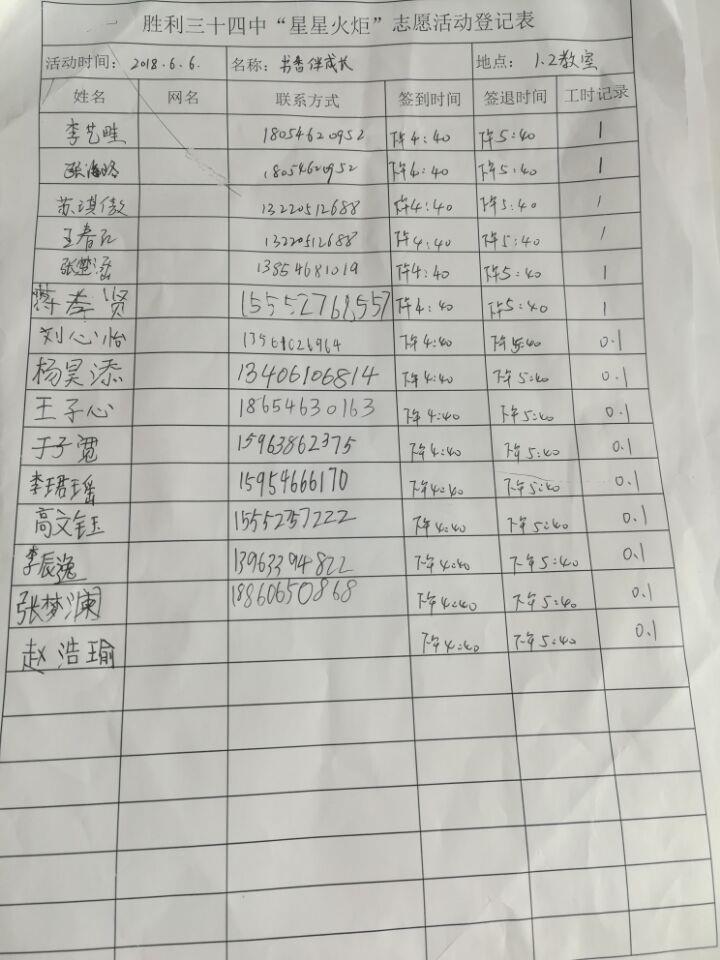 胜利三十四中“星星火炬”志愿活动登记表
活动时间： 2018.6.6. 名称：书香伴成长 地点： 1.2教室
姓名 网名 联系方式 签到时间 签退时间 工时记录
李艺畦 18054620952 下午4:40 下午5:40 1
张海路 18054620952 下午4:40 下午5:40 1
苏琪傲 13220512688 下午4:40 下午5:40 1
王春红 13220512688 下午4:40 下午5:40 1
张楚涵 13854681019 下午4:40 下午5:40 1
蒋孝贤 15552768557 下午4:40 下午5:40 1
刘心怡 下午4:40 下午5:40 0.1
杨昊添 13406106814 下午4:40 下午5:40 0.1
王子心 18654630163 下午4:40 下午5:40 0.1
于子宽 15963862375 下午4:40 下午5:40 0.1
李珺瑶 15954666170 下午4:40 下午5:40 0.1
高文钰 15552757222 下午4:40 下午5:40 0.1
李辰逸 13963394822 下午4:40 下午5:40 0.1
张梦澜 18860650868 下午4:40 下午5:40 0.1
赵浩瑜 下午4:40 下午5:40 0.1